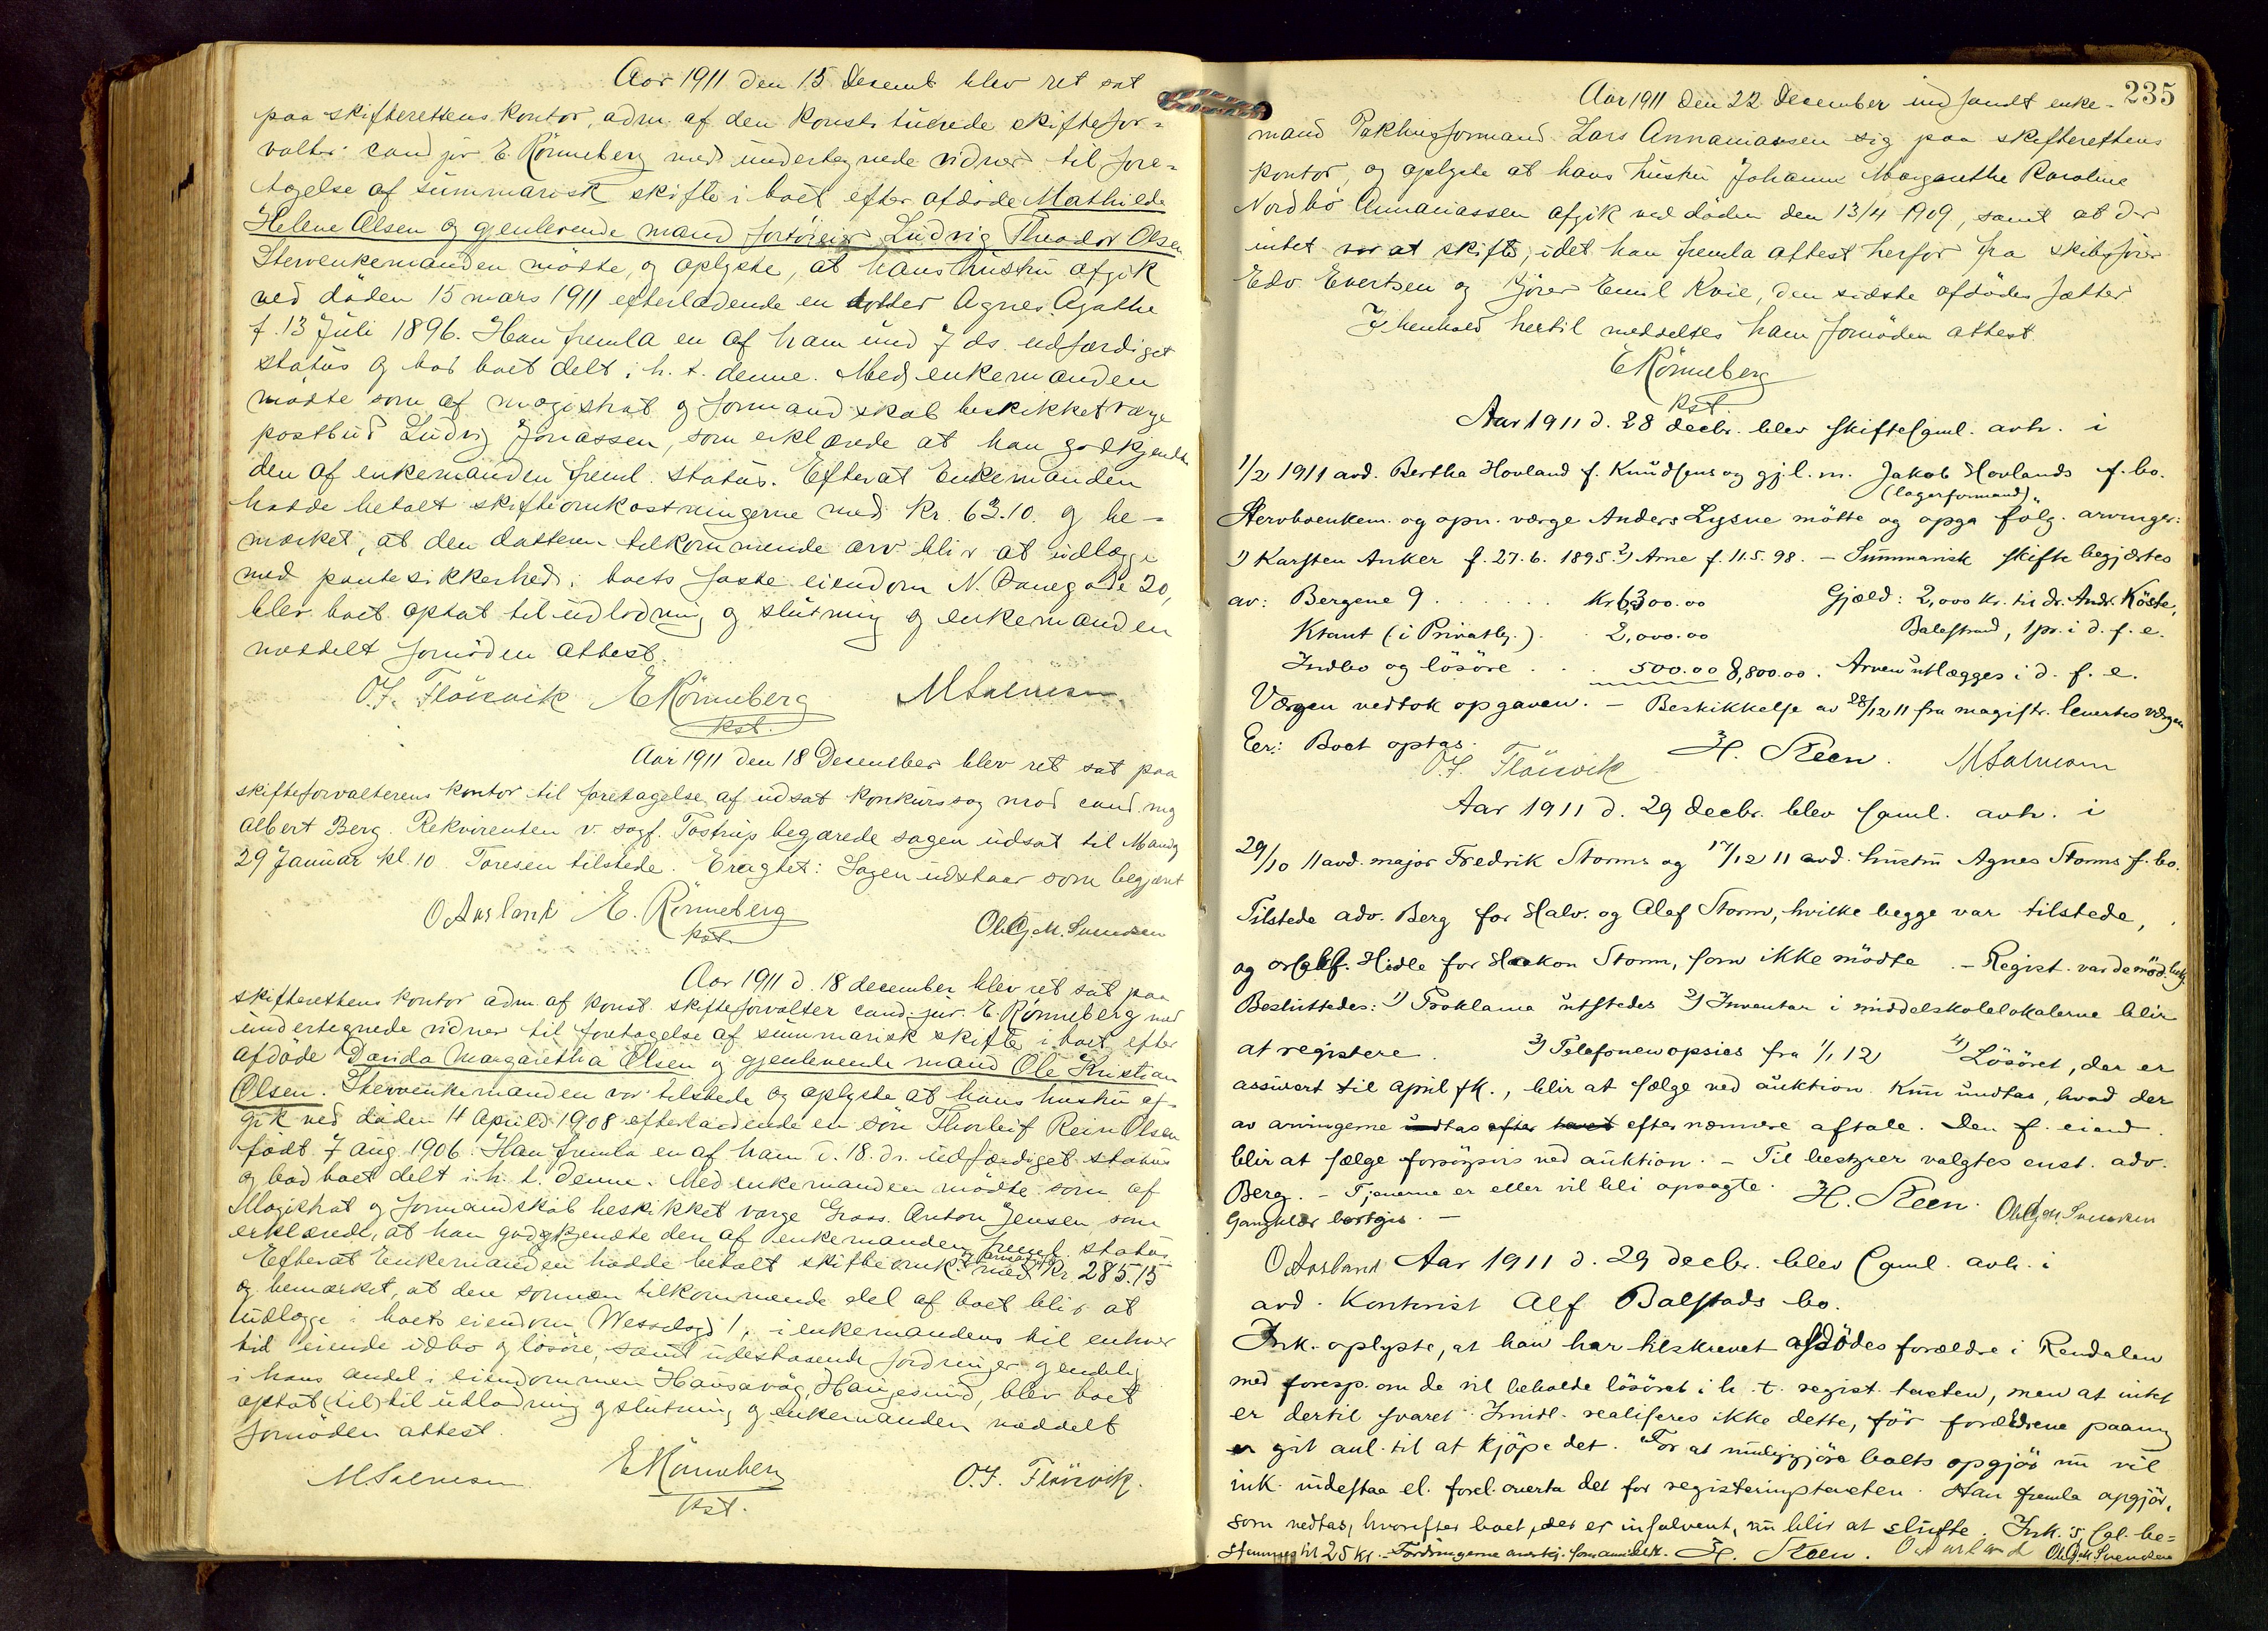 Aar 1911 den 15 desemb blev ret sat
paa skifterettens kontor, adm. af den konstituerede skiftefor=
valter cand jur E. Rönneberg med undertegnede vidner til fore=
tagelse af summarisk skifte i boet efter afdöde Mathilde
Helene Olsen og gjenlevende mand fortöier Ludvig Theodor Olsen
Stervenkemanden mötte, og oplyste, at hans hustru afgik
ved döden 15 mars 1911 efterladende en datter Agnes Agathe
f. 13 Juli 1896. Han fremla en af ham und 7 ds. udfærdiget
status og bad boet delt i h. t. denne. Med enkemanden
mödte som af magistrat og formandskab beskikket værge
postbud Ludvig Jonassen, som erklærede at han godkjendte
den af enkemanden freml. status. Efterat Enkemanden
hadde betalt skifteomkostningerne med kr. 63.10. og be=
mærket, at den datteren tilkommende arv blir at udlægge
med pantesikkerhed i boets faste eiendom N. Danegade 20,
blev boet optat til udlodning og slutning og enkemanden
meddelt fornöden attest.
O. J. Flöisvik E Rönneberg M Salmesen
kst.
Aar 1911 den 18 Desember blev ret sat paa
skifteforvalterens kontor til foretagelse af udsat konkurssag mod cand. mag
Albert Berg. Rekvirenten v. sagf. Tostrup begjærede sagen udsat til Mandag
29 Januar kl. 10. Toresen tilstede. Eragtet: Sagen udstaar som begjært
O Aarland E. Rönneberg
kst. Ole Gj. M. Svendsen
Aar 1911 d. 18 december blev ret sat paa
skifterettens kontor adm af konst. skifteforvalter cand. jur. E. Rönneberg med
undertegnede vidner til foretagelse af summarisk skifte i boet efter
afdöde Davida Margaretha Olsen og gjenlevende mand Ole Kristian
Olsen. Stervenkemanden var tilstede og oplyste at hans hustru af=
gik ved döden 4 April 1908 efterladende en sön Thorleif Rein Olsen
födt 7 aug 1906. Han fremla en af ham d. 18. ds. udfærdiget status
og bad boet delt i h. t. denne. Med enkemanden mödte som af
Magistrat og formandskab beskikket værge Gross. Anton Jensen som
erklærede, at han godkjendte den af enkemanden freml. status
Efterat Enkemanden hadde betalt skifteomk. med kr. 285.15
og bemærket, at den sönnen tilkommende del af boet blir at
udlægge i boets eiendom Wesselsgd 1, i enkemandens til enhver
tid eiende indbo og lösöre, samt udestaaende fordringer og endelig
i hans andel i eiendommen Hausavåg, Haugesund, blev boet
optat (til) til udlodning og slutning og enkemanden meddelt
fornöden attest.
M. Salmesen E Rönneberg O. J. Flöisvik.
kst.
235
Aar 1911 den 22 december indfandt enke=
mand Pakhusformand Lars Annaniassen sig paa skifterettens
kontor, og oplyste at hans hustru Johanne Margarethe Karoline
Nordbö Annaniassen afgik ved döden den 13/4 1909, samt at der
intet var at skifte, idet han fremla attest herfor fra skibsförer
Edv Evertsen og Emil Kvie, den sidste afdödes fætter
I henhold hertil meddeltes ham fornöden attest.
E Rönneberg
kst
Aar 1911 d. 28 decbr. blev skiftesaml. avh. i
1/2 1911 avd. Bertha Hovland f. Knudsens og gj.l. m. Jakob Hovlands f. bo.
(lagerformand)
Stervboenkem. og opn. værge Anders Lysne mötte og opga fölg. arvinger:
1) Karsten Anker f. 27.6. 1895. 2) Arne f. 11.5. 98. – Summarisk skifte begjærtes
av: Bergene 9 . . . . . kr 6,300.00 Gjæld: 2,000 kr. til dr. Andr. Köste,
Ktant (i Privatbg.) . . 2,000.00 Balestrand, 1 pr. i d. f. e.
Indbo og lösöre . . . 500.00 8,800.00. Arven utlægges i d. f. e.
Værgen vedtok opgaven. – Beskikkelse av 28/12 11 fra magistr. levertes værgen
Eer: Boet optas.
O. J. Flöisvik H. Steen. M. Salmesen
Aar 1911 d. 29 decbr. blev saml. avh. i
29/10 11 avd. major Fredrik Storms og 17/12 11 avd. hustru Agnes Storms f. bo.
Tilstede adv. Berg for Halv. og Olaf Storm, hvilke begge var tilstede,
og orsakf. Hidle for Haakon Storm, som ikke mödte. – Regist. var de möd. bek.
Besluttedes: 1) Proklama utstedes 2) Inventar i middelskolelokalerne blir
at registere. 3) Telefonen opsies fra 1/1 12 4) Lösöret, der er
assurert til april fk., blir at sælge ved auktion. Kun undtas, hvad der
av arvingerne undtas efter havet efter nærmere aftale. Den f. eiend.
blir at sælge forsögsvis ved auktion. – Til bestyrer valgtes enst. adv.
Berg. – Tjenerne er eller vil bli opsagte. H. Steen. Ole Gj. M. Svendsen
Gangklær bortgis. –
O Aarland Aar 1911 d. 29 decbr. blev saml. avh. i
avd. Kontorist Alf Balstads bo.
Ink. oplyste, at han har tilskrevet afdödes forældre i Rendalen
med foresp. om de vil beholde lösöret i h. t. regist. taksten, men at intet
er dertil svaret. Imidl. realiseres ikke dette, för forældrene paany
er git anl. til at kjöpe det. For at muliggjöre boets opgjör nu vil
ink. indestaa el. forel. overta det for registeringstaksten. Han fremla opgjör,
som vedtas, hvorefter boet, der er insolvent, nu blir at slutte. Ink.s sal. be=
stemmes til 25 kr. – Fordringerne anerkj. som anmeldt. H. Steen. O Aarland Ole Gj. M. Svendsen